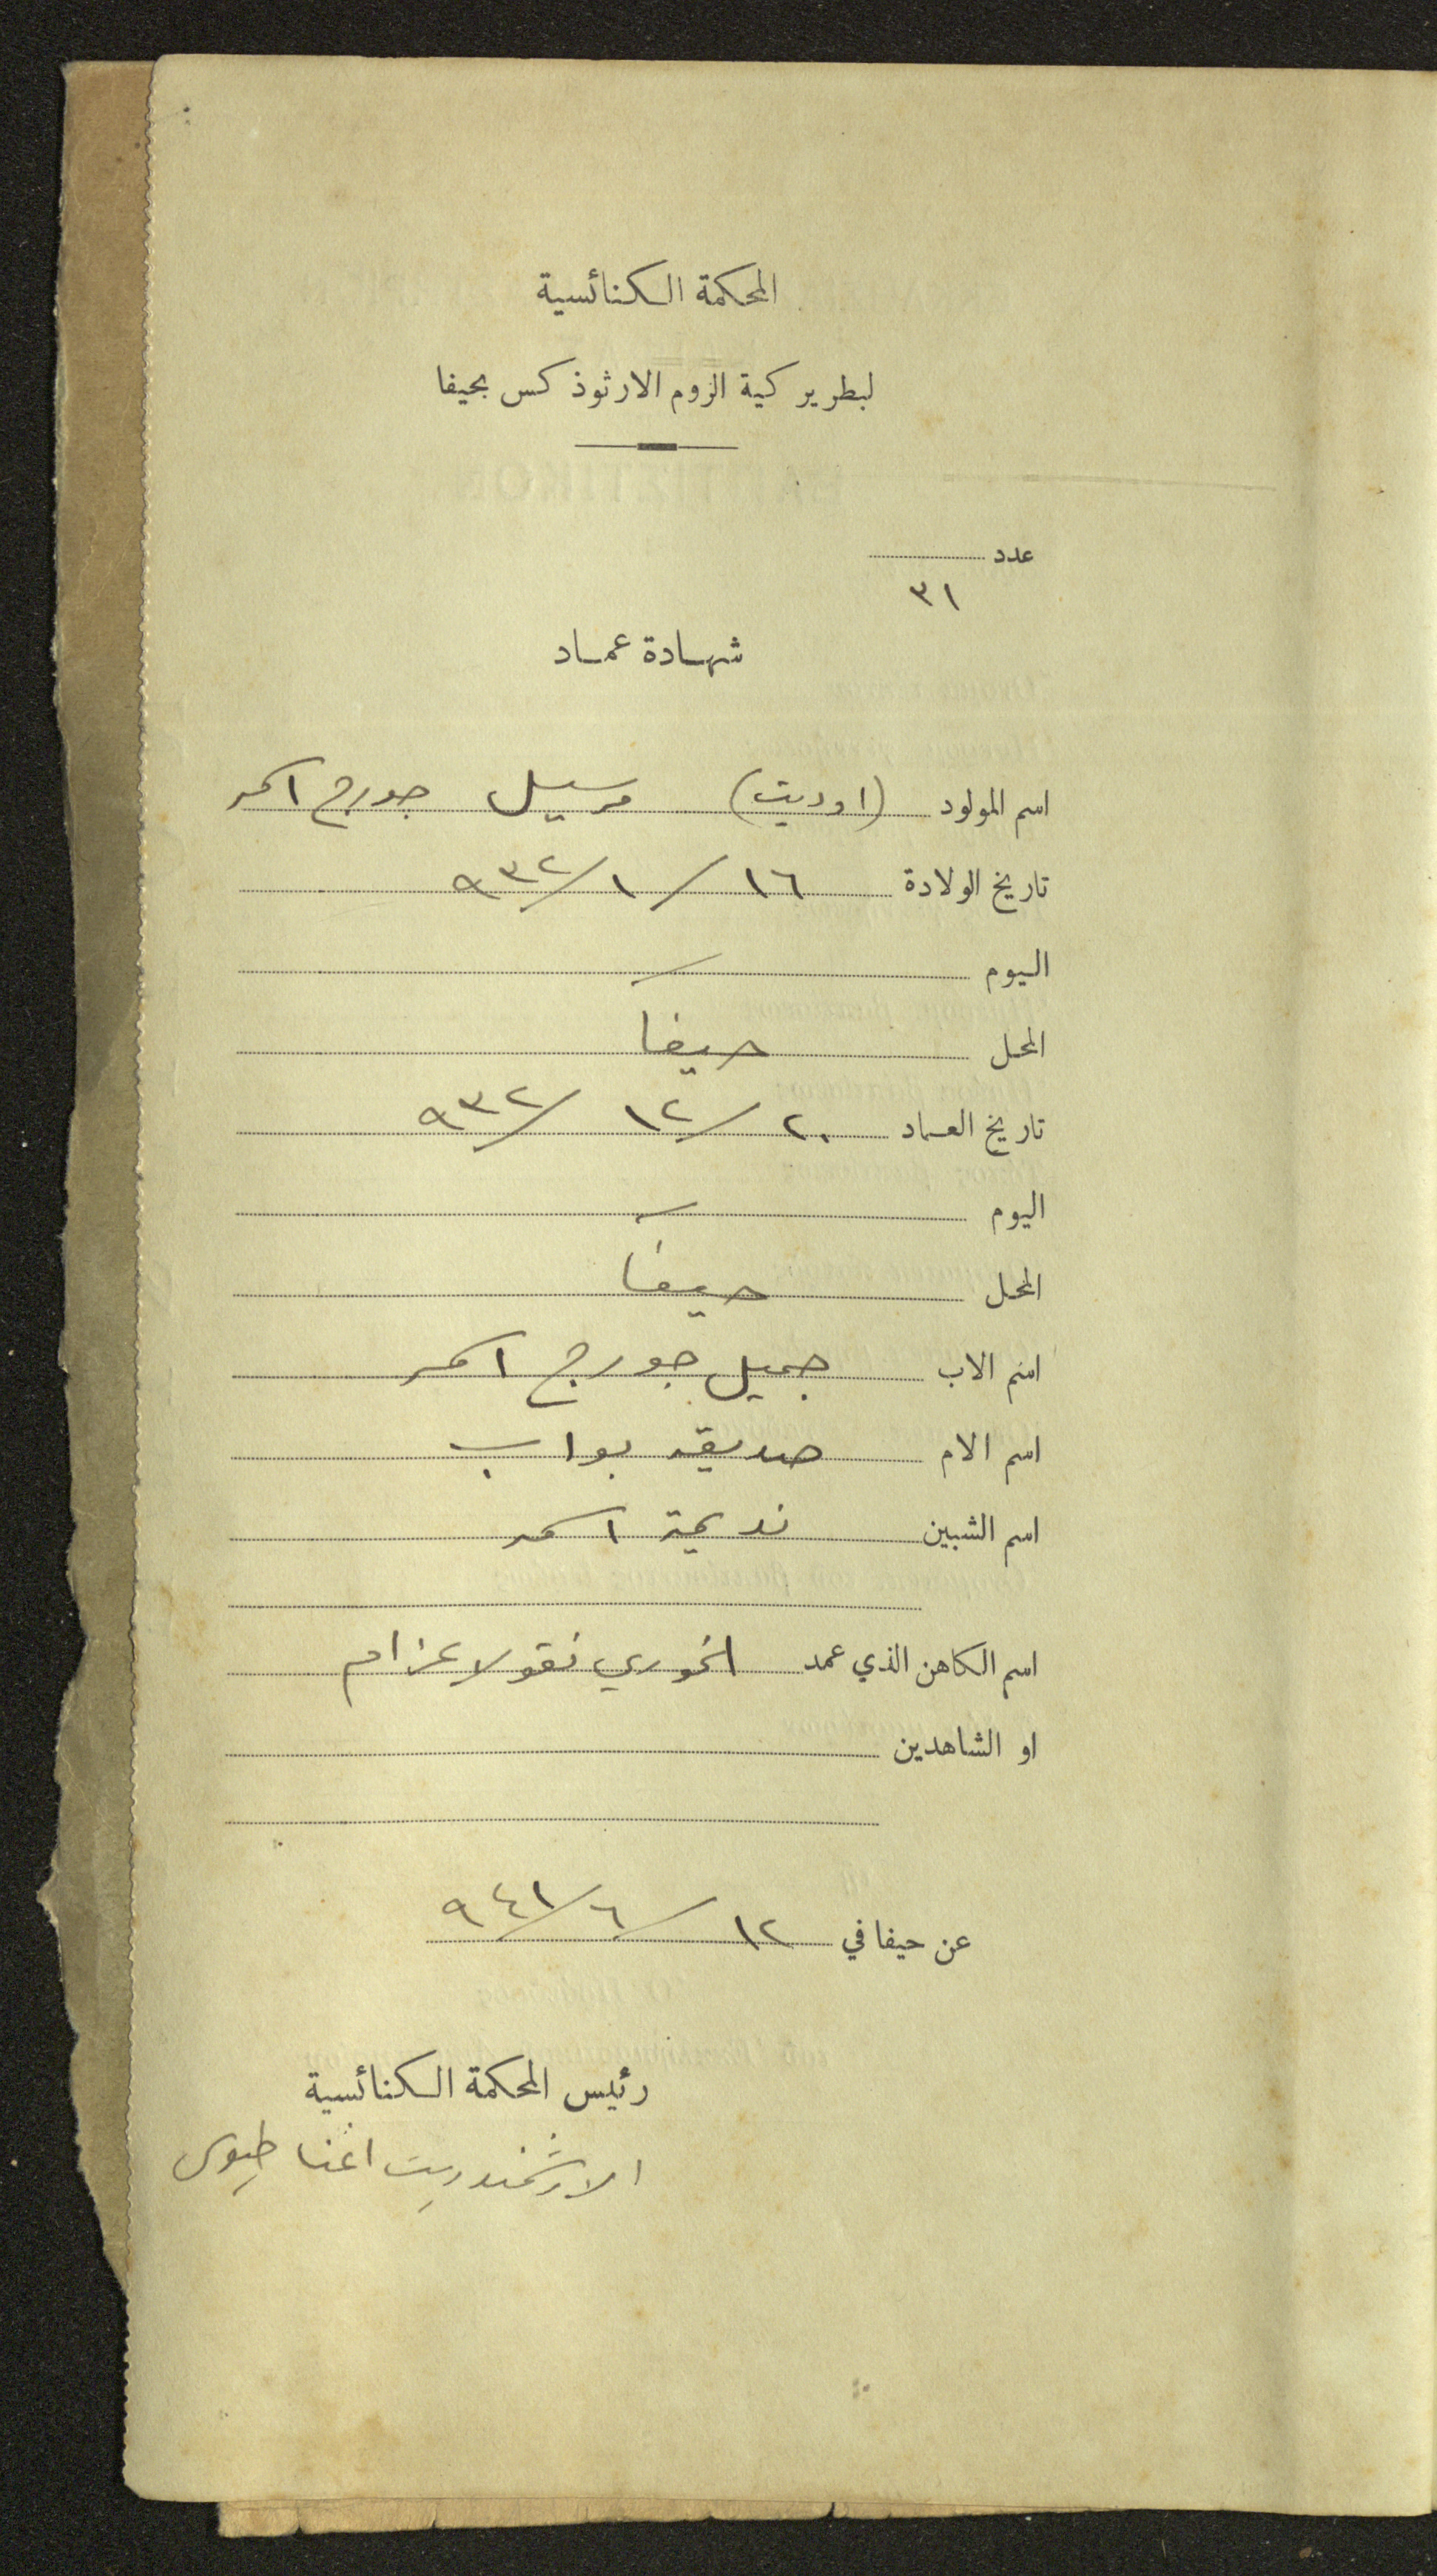 المحكمة الكنائسية
لبطريركية الروم الارثوذكس بحيفا
عدد
٣١
شهادة عماد
اسم المولود (اوديت) مرسيل جورج
تاريخ الولادة ١٦/١/٩٣٢
اليوم
المحل حيفا
تاريخ العماد ٢٠/١٢/٩٣٢
اليوم
المحل حيفا
اسم الاب جميل جورج
اسم الام صديقه بواب
اسم الشبين نديمة
اسم الكاهن الذي عمد الخوري نقولا عزام
او الشاهدين
عن حيفا في ١٢/٦/٩٤١
رئيس المحكمة الكنائسية
الارشمندريت اغناطيوس